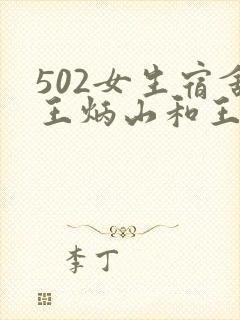 502女生宿舍
王炳山和王
李丁